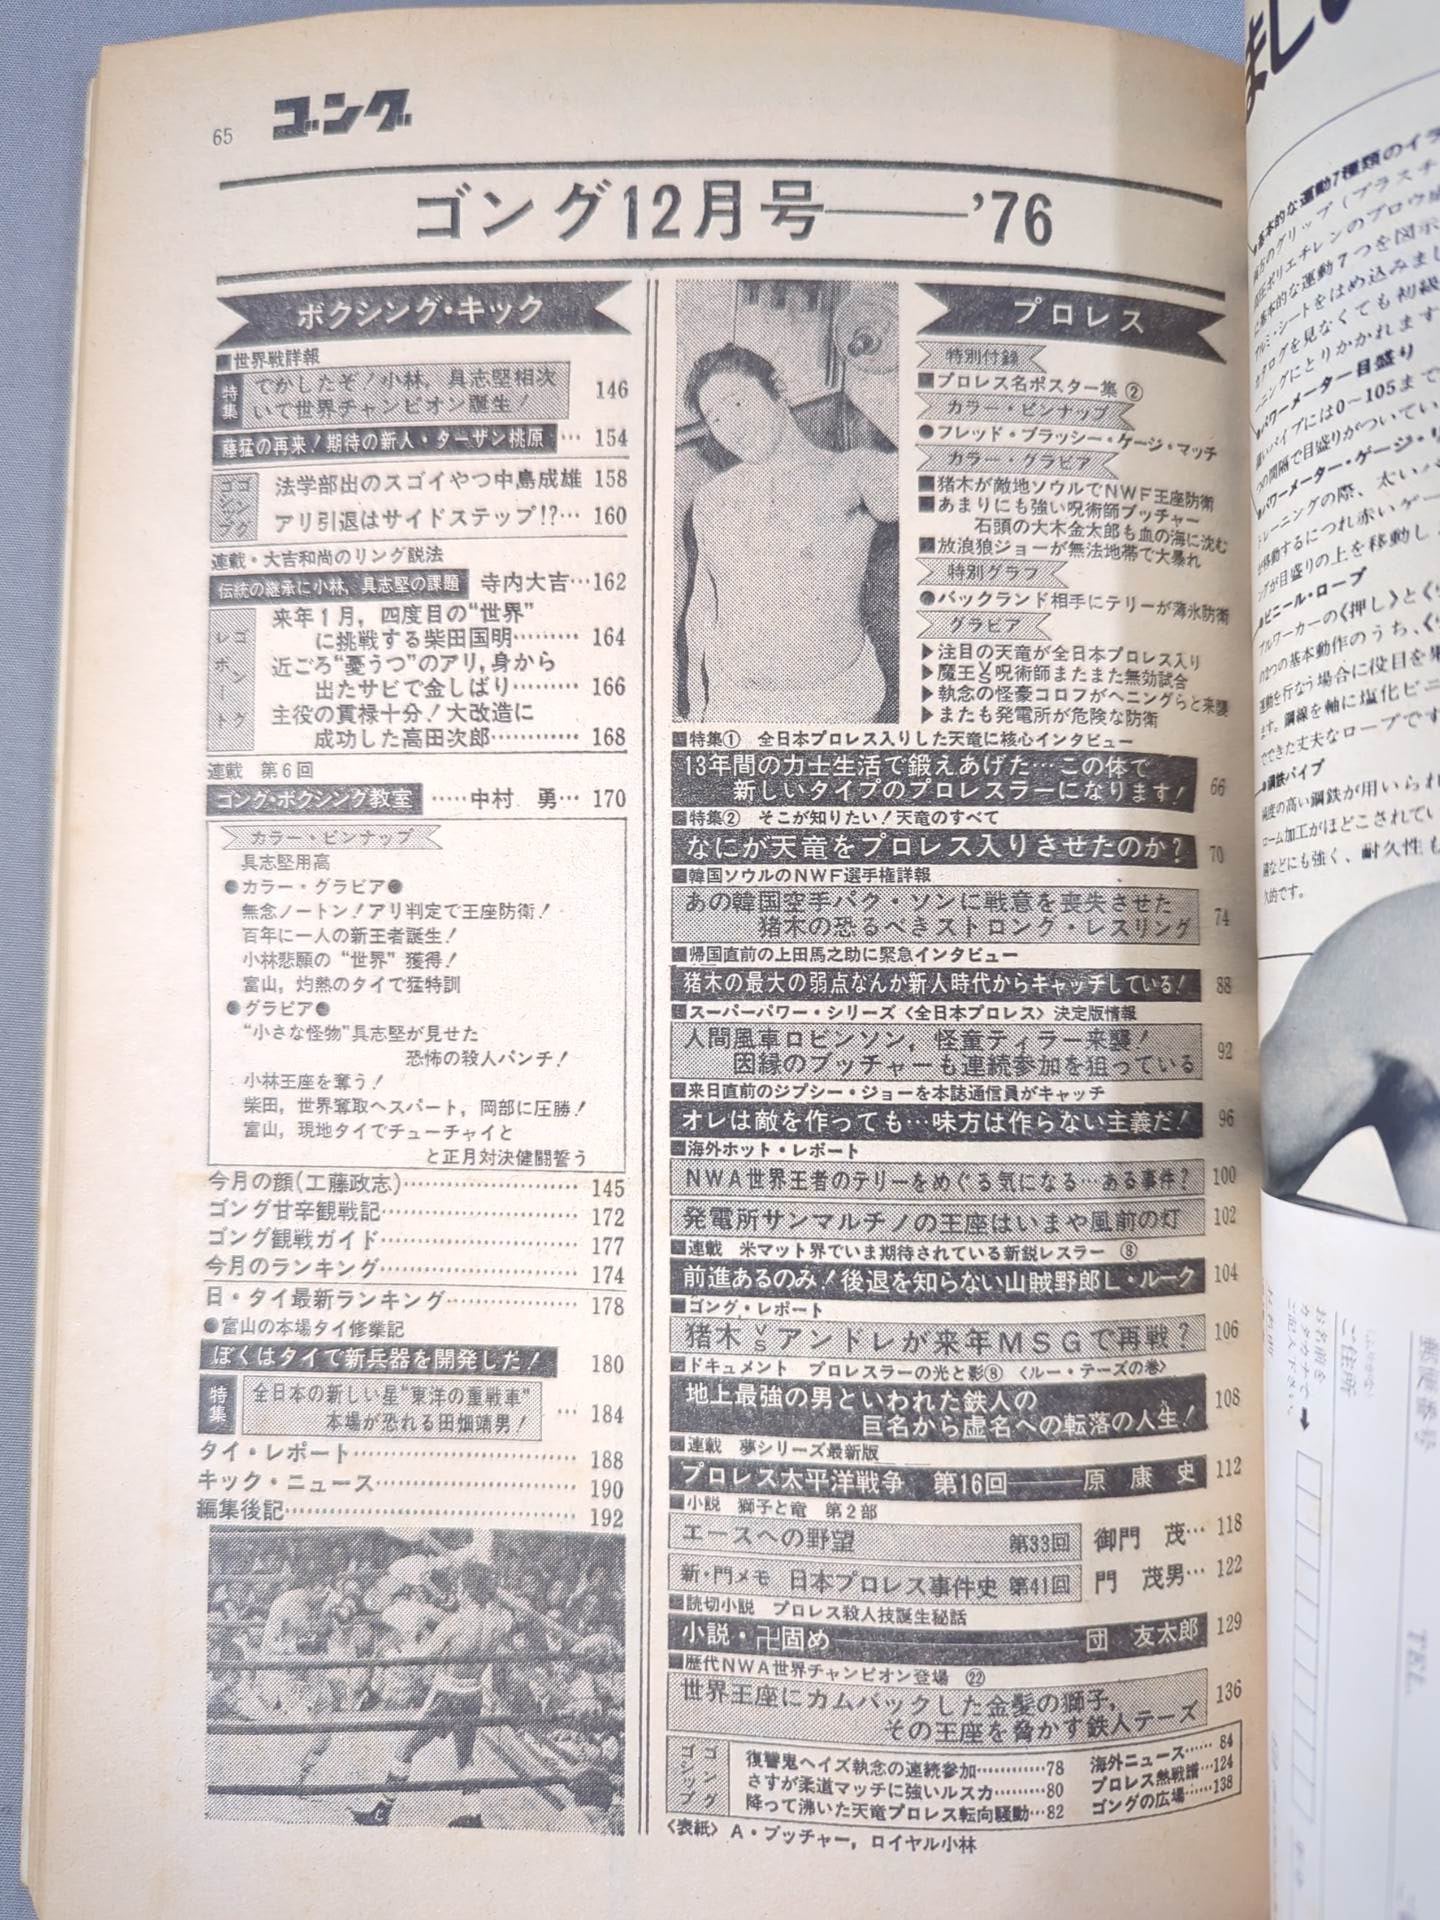 65
ゴング
ゴング12月号――'76
ボクシング・キック
■世界戦詳報
特集
でかしたぞ!小林,具志堅相次
いで世界チャンピオン誕生! 146
藤猛の再来!期待の新人・ターザン桃原… 154
ゴングゴシップ
法学部出のスゴイやつ中島成雄 158
アリ引退はサイドステップ!?… 160
連載・大吉和尚のリング説法
伝統の継承に小林,具志堅の課題 寺内大吉…162
ゴングレポート
来年1月,四度目の“世界”
に挑戦する柴田国明……… 164
近ごろ“憂うつ”のアリ,身から
出たサビで金しばり……… 166
主役の貫禄十分!大改造に
成功した高田次郎………… 168
連載 第6回
ゴング・ボクシング教室 ……中村 勇… 170
カラー・ピンナップ
具志堅用高
●カラー・グラビア●
無念ノートン!アリ判定で王座防衛!
百年に一人の新王者誕生!
小林悲願の“世界”獲得!
富山,灼熱のタイで猛特訓
●グラビア●
“小さな怪物”具志堅が見せた
恐怖の殺人パンチ!
小林王座を奪う!
柴田,世界奪取へスパート,岡部に圧勝!
富山,現地タイでチューチャイと
と正月対決健闘誓う
今月の顔(工藤政志)…………………… 145
ゴング甘辛観戦記……………………… 172
ゴング観戦ガイド……………………… 177
今月のランキング……………………… 174
日・タイ最新ランキング……………… 178
●富山の本場タイ修業記
ぼくはタイで新兵器を開発した! 180
特集
全日本の新しい星“東洋の重戦車”
本場が恐れる田畑靖男! … 184
タイ・レポート………………………… 188
キック・ニュース……………………… 190
編集後記………………………………… 192
プロレス
特別付録
■プロレス名ポスター集②
カラー・ピンナップ
●フレッド・ブラッシー・ケージ・マッチ
カラー・グラビア
■猪木が敵地ソウルでNWF王座防衛
■あまりにも強い呪術師ブッチャー
石頭の大木金太郎も血の海に沈む
■放浪狼ジョーが無法地帯で大暴れ
特別グラフ
●バックランド相手にテリーが薄氷防衛
グラビア
▶注目の天竜が全日本プロレス入り
▶魔王VS呪術師またまた無効試合
▶執念の怪豪コロフがヘニングらと来襲
▶またも発電所が危険な防衛
■特集① 全日本プロレス入りした天竜に核心インタビュー
13年間の力士生活で鍛えあげた…この体で
新しいタイプのプロレスラーになります! 66
■特集② そこが知りたい!天竜のすべて
なにが天竜をプロレス入りさせたのか? 70
■韓国ソウルのNWF選手権詳報
あの韓国空手パク・ソンに戦意を喪失させた
猪木の恐るべきストロング・レスリング 74
■帰国直前の上田馬之助に緊急インタビュー
猪木の最大の弱点なんか新人時代からキャッチしている! 88
■スーパーパワー・シリーズ〈全日本プロレス〉決定版情報
人間風車ロビンソン,怪童テイラー来襲!
因縁のブッチャーも連続参加を狙っている 92
■来日直前のジプシー・ジョーを本誌通信員がキャッチ
オレは敵を作っても…味方は作らない主義だ! 96
■海外ホット・レポート
NWA世界王者のテリーをめぐる気になる…ある事件? 100
発電所サンマルチノの王座はいまや風前の灯 102
■連載 米マット界でいま期待されている新鋭レスラー ⑧
前進あるのみ!後退を知らない山賊野郎L・ルーク 104
■ゴング・レポート
猪木VSアンドレが来年MSGで再戦? 106
■ドキュメント プロレスラーの光と影⑧〈ルー・テーズの巻〉
地上最強の男といわれた鉄人の
巨名から虚名への転落の人生! 108
■連載 夢シリーズ最新版
プロレス太平洋戦争 第16回――原 康史 112
■小説 獅子と竜 第2部
エースへの野望 第33回 御門 茂… 118
新・門メモ 日本プロレス事件史 第41回 門 茂男… 122
■読切小説 プロレス殺人技誕生秘話
小説・卍固め――――団 友太郎 129
■歴代NWA世界チャンピオン登場 ㉒
世界王座にカムバックした金髪の獅子,
その王座を脅かす鉄人テーズ 136
ゴングゴシップ
復讐鬼ヘイズ執念の連続参加…………78
さすが柔道マッチに強いルスカ………80
降って沸いた天竜プロレス転向騒動…82
海外ニュース…… 84
プロレス熱戦譜…124
ゴングの広場……138
〈表紙〉A・ブッチャー,ロイヤル小林
●パワーメーター目盛り
●ビニール・ロープ
●鋼鉄パイプ
久的です。
ご住所
郵便番号
TEL.